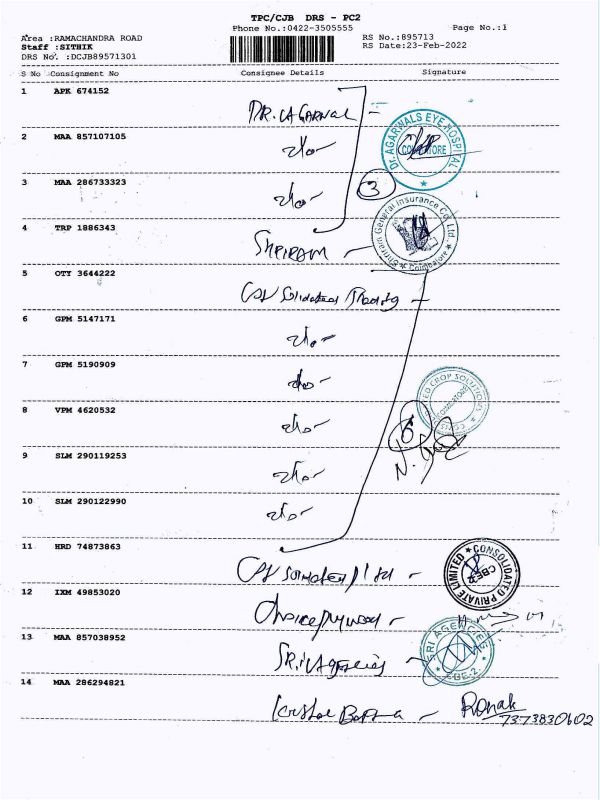 TPC/CJB DRS - PC2
Phone No.:0422-3505555
Page No.:1
Area :RAMACHANDRA ROAD
RS No.:895713
Staff :SITHIK
RS Date:23-Feb-2022
DRS No. :DCJB89571301
S No Consignment No Consignee Details Signature
1 APK 674152
DR. AGARWAL
2 MAA 857107105
Dr. AGARWALS EYE HOSPITAL
COIMBATORE
3 MAA 286733323
3
4 TRP 1886343
SHRIRAM
Shriram General Insurance Co. Ltd.
Coimbatore
5 OTY 3644222
6 GPM 5147171
7 GPM 5190909
8 VPM 4620532
CROP SOLUTIONS
6
9 SLM 290119253
10 SLM 290122990
11 HRD 74873863
CONSOLIDATED
PRIVATE LIMITED
12 IXM 49853020
13 MAA 857038952
Sri Agencies
SRI AGENCIES
CBE-2.
14 MAA 286294821
Ronak
7373830602